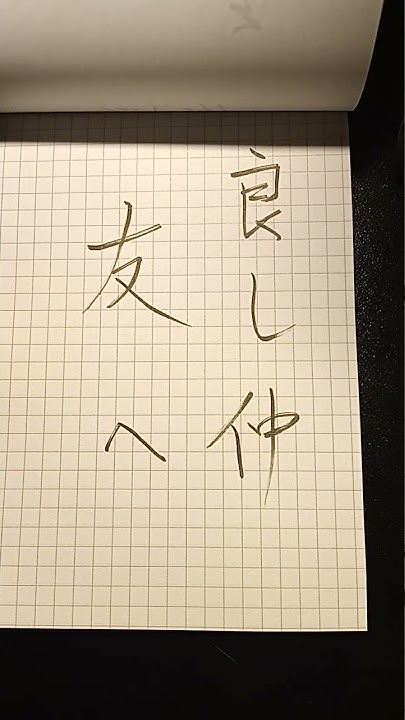 良し仲
友へ